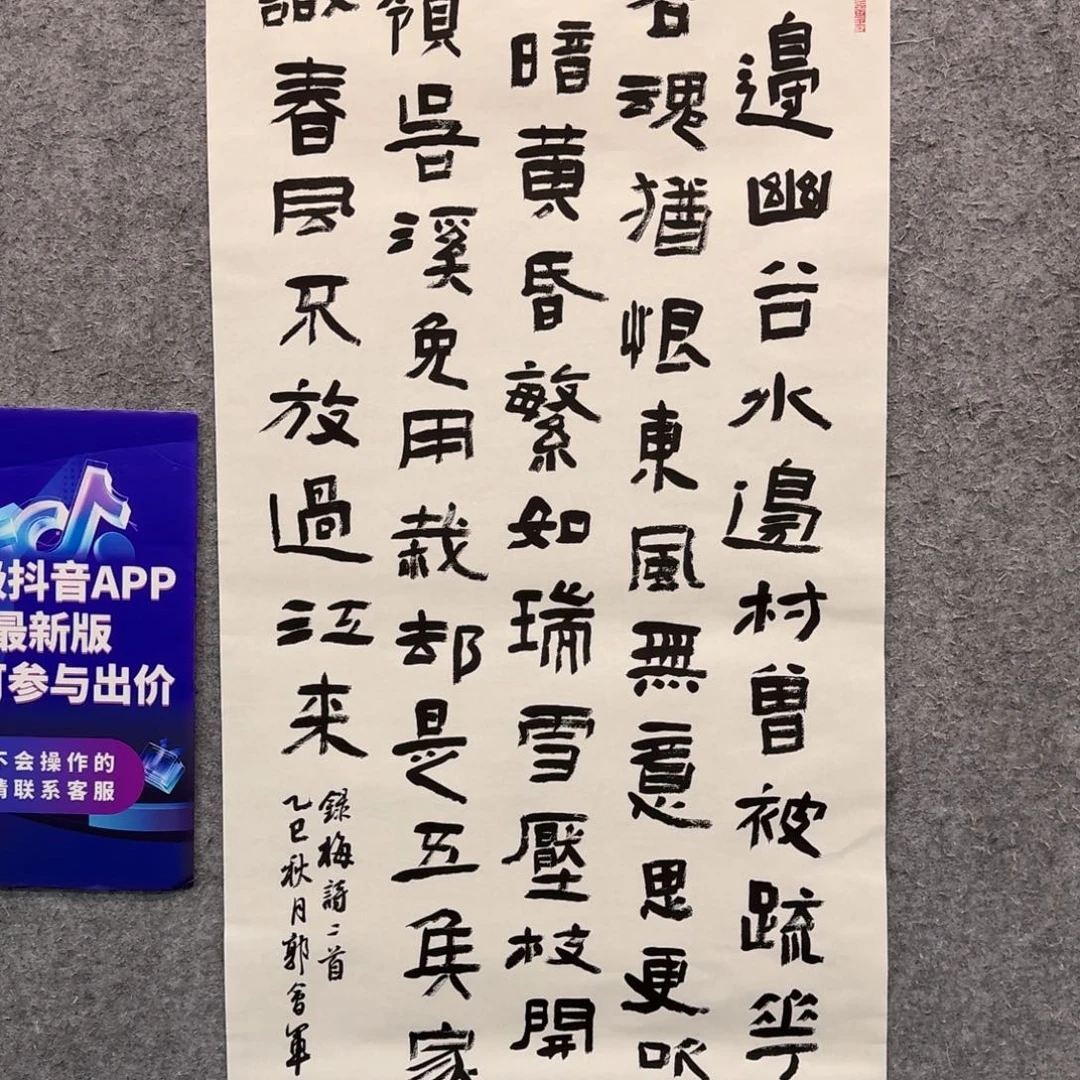 邊幽谷水邊村曾被疏華
客魂猶恨東風無意思更吹
暗黄昏繁如瑞雪壓枝開
嶺吳溪免用栽却是五侯家
識春風不放過江来
録梅詩二首
乙巳秋月郭會軍
级抖音APP
最新版
可参与出价
不会操作的
请联系客服